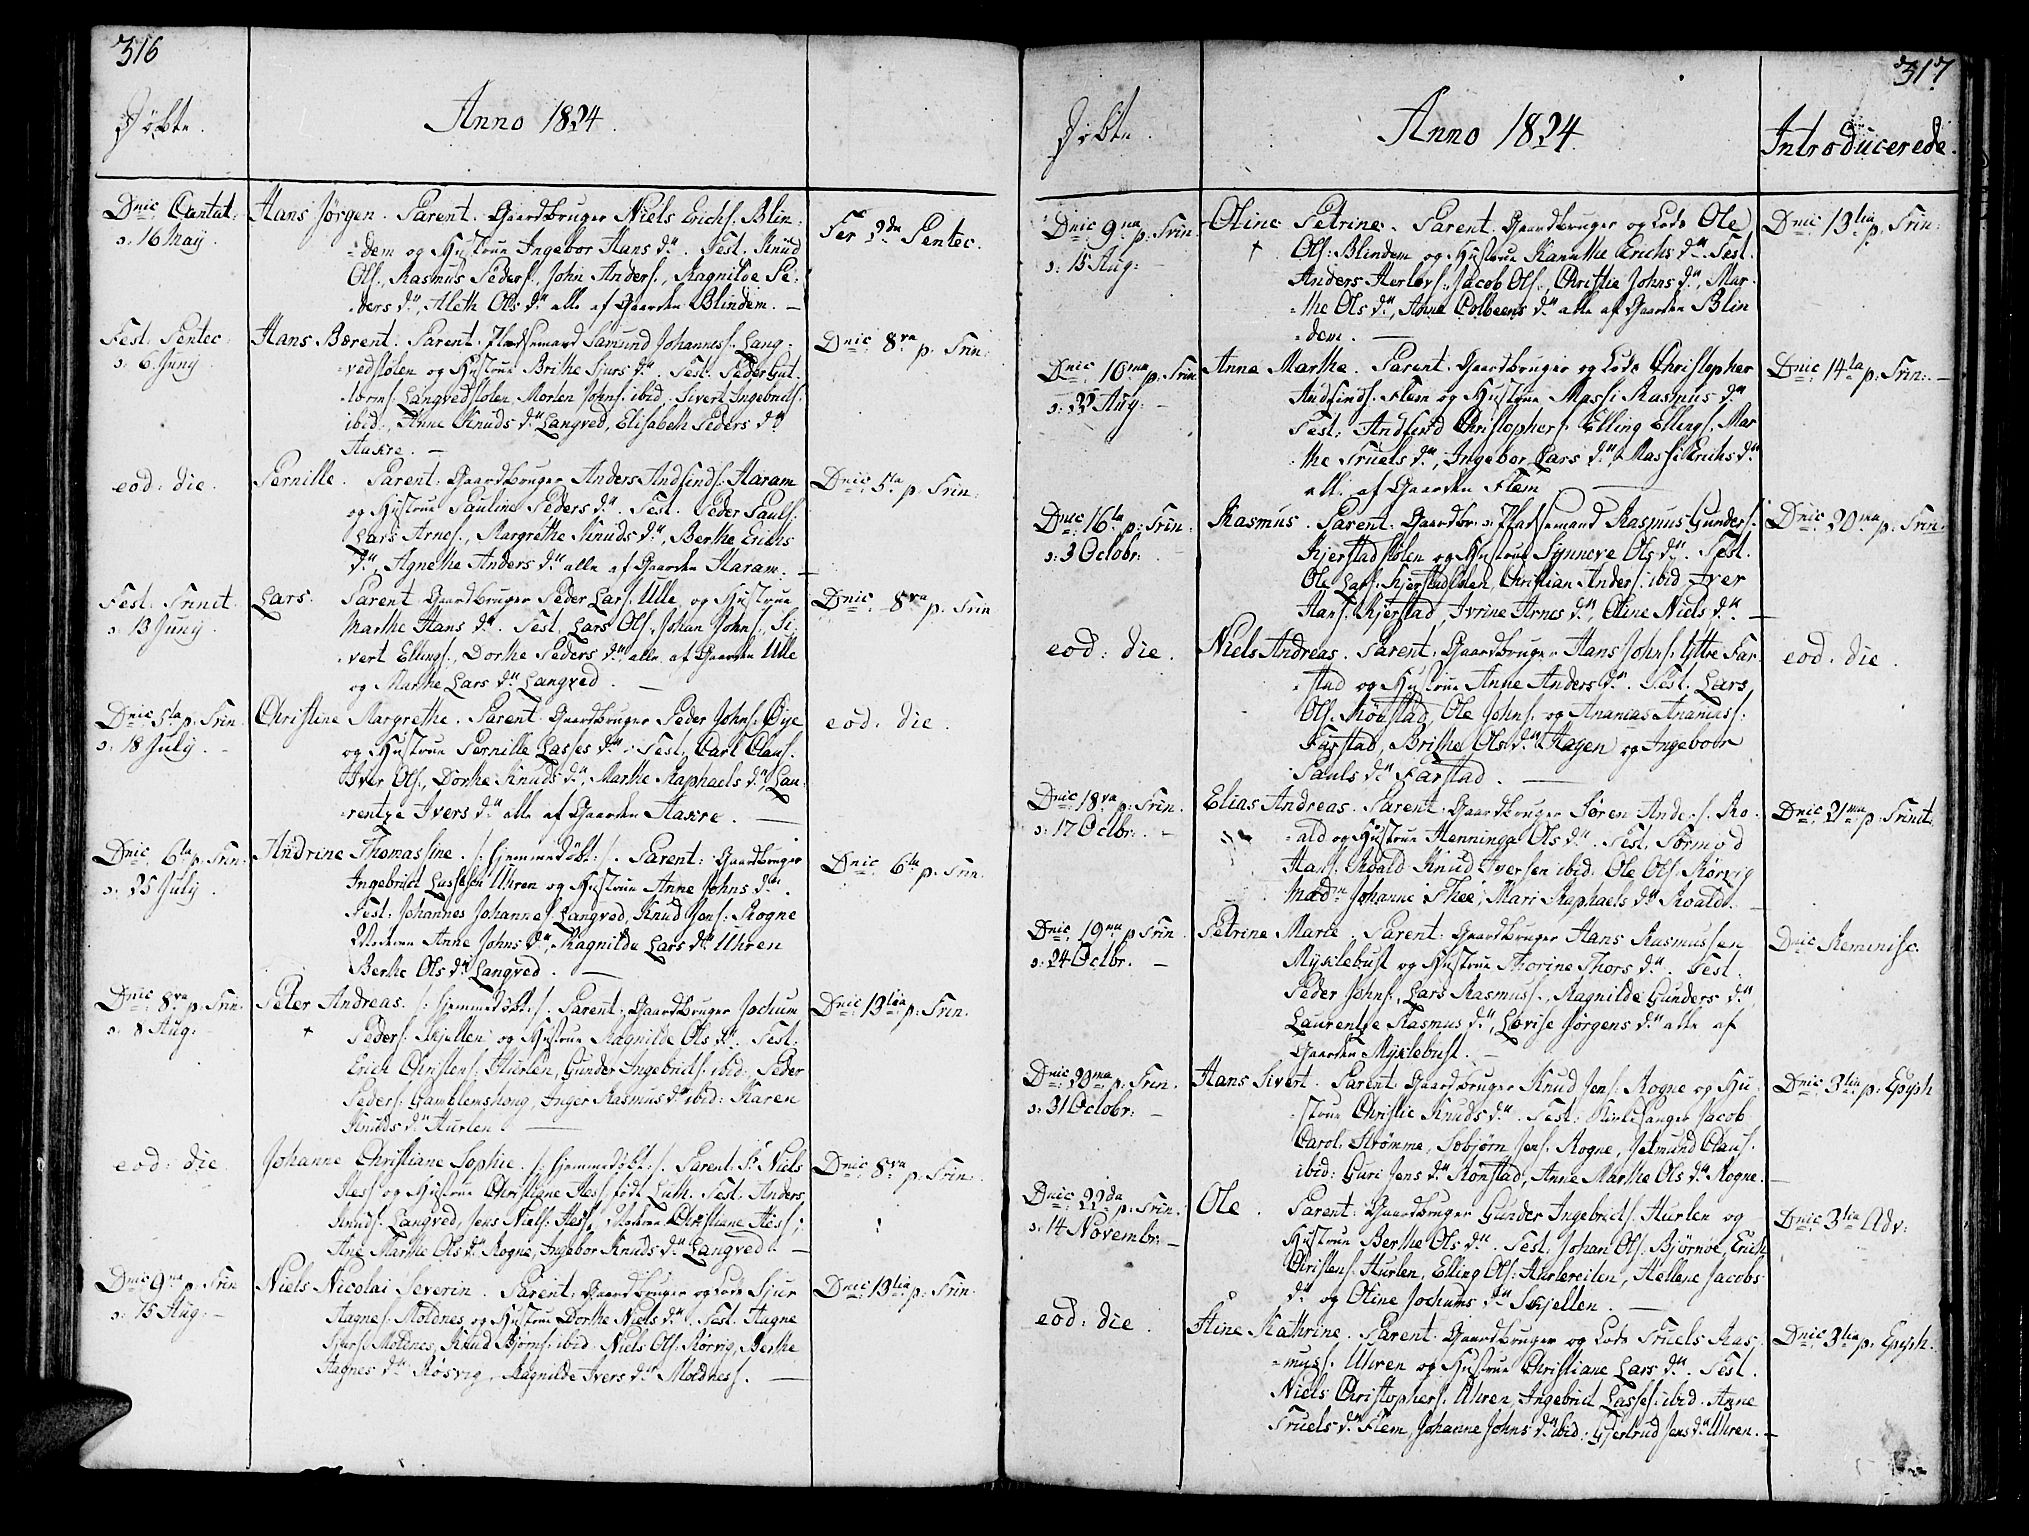 316
Døbte.
Anno 1824.
Dnic Cantat:
ɔ: 16 May.
Hans Jørgen. Parent. Gaardbruger Niels Erichs. Blin-
dem og Hustrue Ingebor Hans dr. Test. Knud
Ols., Rasmus Peders., John Anders., Ragnilde Pe-
ders dr, Aleth Ols dr alle af Gaarden Blindem. —
Fer 2da Pentec.
Fest. Pentec:
ɔ: 6 Juny.
Hans Bærent. Parent. Pladsemand Samund Johanness. Lang-
vedstølen og Hustrue Brithe Sjurs dr. Test. Peder Gut-
torms. Langvedstølen Morten Johns. ibid, Sivert Ingebrits.
ibid., Anne Knuds dr Langved, Elisabeth Peders dr
Aakre. —
Dnic 8va p. Trin:
eod: die.
Pernille. Parent. Gaardbruger Anders Andfinds. Haram
og Hustrue Pauline Peders dr. Test. Peder Pauls.
Lars Arnes., Margrethe Knuds dr, Berthe Erichs
dr, Agnethe Anders dr alle af Gaarden Haram. —
Dnic 5ta p. Trin:
Fest. Trinit.
ɔ: 13 Juny.
Lars. Parent. Gaardbruger Peder Lars. Ulle og Hustrue
Marthe Hans dr. Test. Lars Ols., Johan Johns., Si-
vert Ellings., Dorthe Peders dr, alle af Gaarden Ulle
og Marthe Lars dr Langved. —
Dnic 8va p. Trin
Dnic 5ta p. Trin.
ɔ: 18 July. —
Christine Margrethe. Parent. Gaardbruger Peder Johns. Øye
og Hustrue Pernille Lasses dr. Test. Carl Claus.
Iver Ols., Dorthe Knuds dr, Marthe Raphaels dr, Lau-
rentze Ivers dr alle af Gaarden Aakre. —
eod. die.
Dnic 6ta p. Trin:
ɔ: 25 July.
Andrine Thomassine. /: hjemmedøbt :/. Parent: Gaardbruger
Ingebrict Lassesen Uhren og Hustrue Anne Johns dr.
Test: Johannes Johannes. Langved, Knud Jens. Rogne
Moderen Anne Johns dr, Ragnilde Lars dr Uhren
Berthe Ols dr Langved. —
Dnic 6ta p. Trin.
Dnic 8va p. Trin.
ɔ: 8 Aug: —
Peter Andreas. /: hjemmedøbt :/. Parent. Gaardbruger Jochum
+ Peders. Skjellen og Hustrue Ragnilde Ols dr. Test.
Erich Christens. Hurlen, Gunder Ingebrictsen ibid. Peder
Peders. Gamblemshong, Inger Rasmus dr ibid: Karen
Knuds dr Hurlen —
Dnic 13tia p. Trin.
eod: die.
Johanne Christiane Sophie. /: hjemmedøbt :/. Parent. Sr Niels
Hess og Hustrue Christiane Hess født Luth. Test. Anders
Knuds. Langved, Jens Niels. Hess, Moderen Christiane Hess,
Ane Marthe Ols dr Rogne, Ingebor Knuds dr Langved. —
Dnic 8va p. Trin:
Dnic 9na p. Trin
ɔ: 15 Aug: —
Niels Nicolai Severin. Parent. Gaardbruger og Lods Sjur
Aagnes. Moldnes og Hustrue Dorthe Niels dr. Test. Aagne
Sjurs. Moldnes, Knud Bjørns. ibid. Niels Ols. Rørvig, Berthe
Aagnes dr Røsvig, Ragnilde Ivers dr Moldness. —
Dnic 13tia p. Trin
317
Døbte.
Anno 1824.
Introducerede.
Dnic 9na p. Trin
ɔ: 15 Aug: —
Oline Petrine. Parent. Gaardbruger og Lods Ole
+ Ols. Blindem og Hustrue Kanuthe Erichs dr. Test.
Anders Herlovs., Jacob Ols., Christie Johns dr, Mar-
the Ols dr, Anne Colbeens dr alle af Gaarden Blin
dem. —
Dnic 13tia p. Trin:
Dnic 10ma p. Trin
ɔ: 22 Aug: —
Anne Marthe. Parent. Gaardbruger og Lods Christopher
Andfinds. Flem og Hustrue Massi Rasmus dr
Test: Andfind Christophers. Elling Ellings. Mar-
the Truels dr, Ingebor Lars dr, Massi Erichs dr
alle af Gaarden Flem —
Dnic 14ta p. Trin: —
Dnic 16ta p. Trin:
ɔ: 3 Octobr: —
Rasmus. Parent. Gaardbr: ɔ: Pladsemand Rasmus Gunders.
Kjerstadstølen og Hustrue Synneve Ols dr. Test.
Ole Lars. Kjerstadstølen, Christian Anders. ibid, Iver
Hans. Kjerstad, Ivrine Arnes dr, Oline Niels dr —
Dnic 20ma p. Trin.
eod: die.
Niels Andreas. Parent. Gaardbruger Hans Johns. Yttre Far-
stad og Hustrue Anne Anders dr. Test. Lars
Ols. Rønstad, Ole Johns. og Ananias Ananiass.
Farstad, Brithe Ols dr Hagen og Ingeboer
Pauls dr Farstad. —
eod. die.
Dnic 18va p. Trin.
ɔ: 17 Octbr: —
Elias Andreas. Parent. Gaardbruger Søren Anders. Ro-
ald og Hustrue Henninga Ols dr. Test. Tormod
Hans. Roald Knud Iversen ibid: Ole Ols. Rørvig
Madm Johanne Thee, Mari Raphaels dr Roald. —
Dnic 21ma p. Trinit.
Dnic 19na p Trin
ɔ: 24 Octbr. —
Petrine Marie. Parent. Gaardbruger Hans Rasmussen
Myklebust og Hustrue Thorine Thors dr. Test:
Peder Johns., Lars Rasmuss., Ragnilde Gunders dr,
Laurentze Rasmus dr, Lovise Jørgens dr alle af
Gaarden Myklebust. —
Dnic Reminisc.
Dnic 20ma p. Trin.
ɔ: 31 Octobr: —
Hans Sivert. Parent. Gaardbruger Knud Jens. Rogne og Hu-
strue Christie Knuds dr. Test: Kirkesanger Jacob
Carol. Strømme, Sobjørn Jens. Rogne, Jetmund Claus.
ibid: Guri Jens dr Rønstad, Anne Marthe Ols dr Rogne. —
Dnic 3tia p. Epiph
Dnic 22da p. Trin.
ɔ: 14 Novembr: —
Ole. Parent: Gaardbruger Gunder Ingebricts. Hurlen og
Hustrue Berthe Ols dr. Test. Johan Ols. Bjørnøe, Erich
Christens. Hurlen, Elling Ols. Hurlereiten, Hellene Jacobs
dr og Oline Jochums dr Skjellen. —
Dnic 3tia Adv:
eod: die.
Stine Kathrine. Parent. Gaardbruger og Lods Truels Ras-
muss. Uhren og Hustrue Christiane Lars dr. Test.
Niels Christophers. Uhren, Ingebrict Lasses. ibid. Anne
Truels dr Flem, Johanne Johns dr ibid: Gjertrud Jens dr Uhren. —
Dnic 3tia p. Epiph.